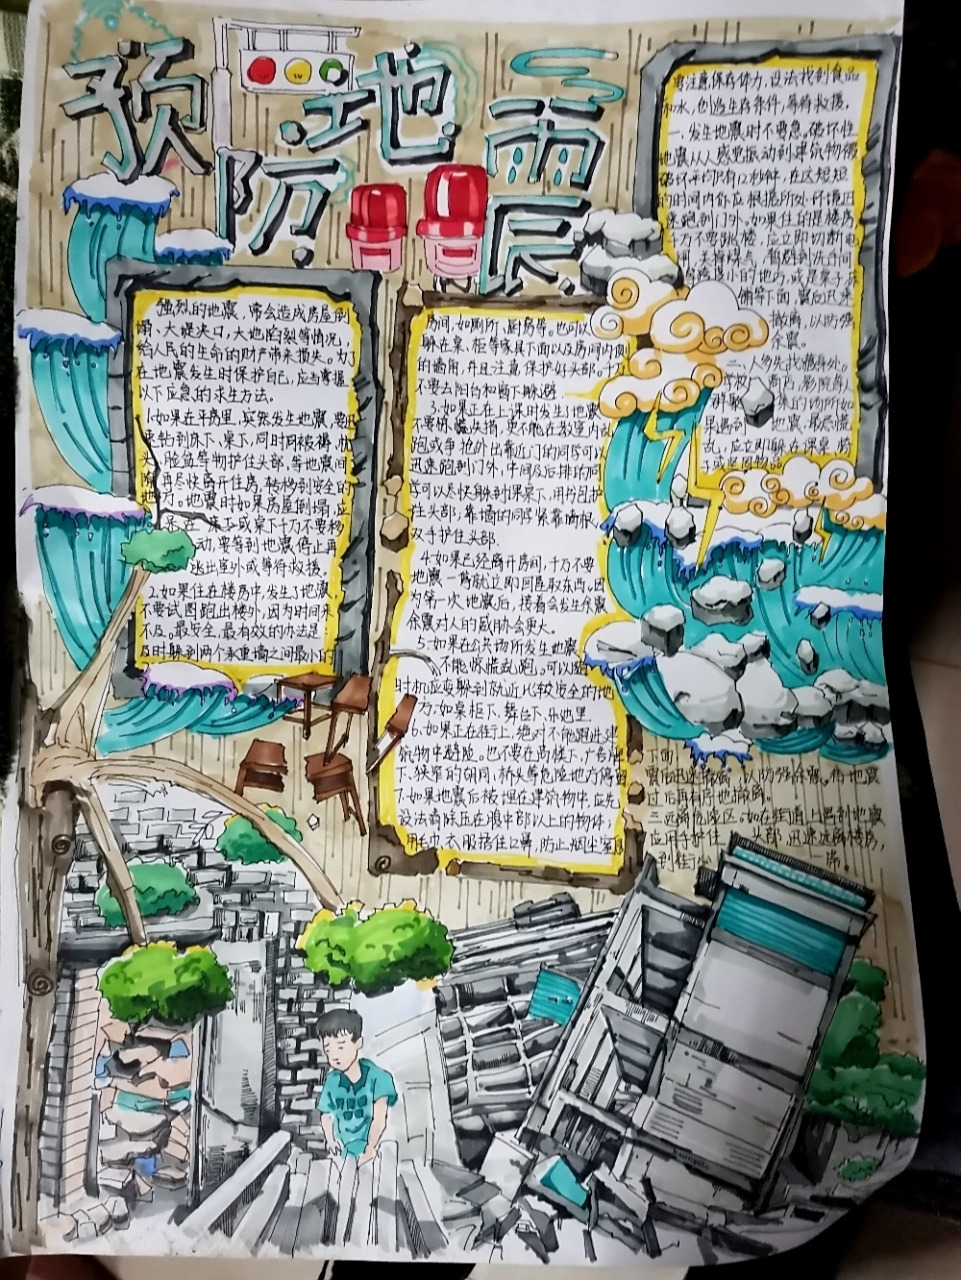 预防地震
强烈的地震，常会造成房屋倒
塌、大堤决口，大地陷裂等情况，
给人民的生命的财产带来损失。为了
在地震发生时保护自己，应当掌握
以下应急的求生方法。
1.如果在平房里，突然发生地震，要迅
速钻到床下、桌下，同时用被褥、枕
头、脸盆等物护住头部，等地震间
隙再尽快离开住房，转移到安全的
地方。地震时如果房屋倒塌，应
呆在床下或桌下千万不要移
动，要等到地震停止再
逃出室外或等待救援。
2.如果住在楼房中，发生了地震，
不要试图跑出楼外，因为时间来
不及。最安全，最有效的办法是：
及时躲到两个承重墙之间最小的
房间，如厕所、厨房等。也可以
躲在桌、柜等家具下面以及房间内侧
的墙角，并且注意保护好头部。千万
不要去阳台和窗下躲避
3.如果正在上课时发生了地震
不要惊慌失措，更不能在教室内乱
跑或争抢外出靠近门的同学可以
迅速跑到门外，中间及后排的同
学可以尽快躲到课桌下，用书包护
住头部；靠墙的同学紧靠墙根
双手护住头部。
4.如果已经离开房间，千万不要
地震一停就立即回屋取东西，因
为第一次地震后，接着会发生余震
余震对人的威胁会更大。
5.如果在公共场所发生地震
不能惊慌乱跑。可以随
时机应变躲到就近比较安全的地
方，如桌柜下、舞台下、乐池里。
6.如果正在街上，绝对不能跑进建
筑物中避险。也不要在高楼下，广告牌
下、狭窄的胡同、桥头等危险地方停留
7.如果地震后被埋在建筑物中，应先
设法清除压在腹部以上的物体；
用毛巾、衣服捂住口鼻，防止烟尘窒息
要注意保存体力，设法找到食品
和水，创造生存条件，等待救援。
一、发生地震时不要急。破坏性
地震从人感觉振动到建筑物被
破坏平均只有12秒钟，在这短短
的时间内你应根据所处环境迅
速跑到门外。如果住的是楼房
千万不要跳楼，应立即切断电
闸，关掉煤气，暂避到洗手间
等跨度小的地方，或是桌子
床铺等下面，震后迅速
撤离，以防强
余震。
二、人多先找藏身处，
学校，商店，影院等人
群聚集的场所如
果遇到地震，最忌慌
乱，应立即躲在课桌，椅
子或坚固物品
下面，
震后迅速撤离，以防强余震。待地震
过后再有序地撤离。
三、远离危险区。如在街道上遇到地震
应用手护住头部，迅速远离楼房，
到街心一带。